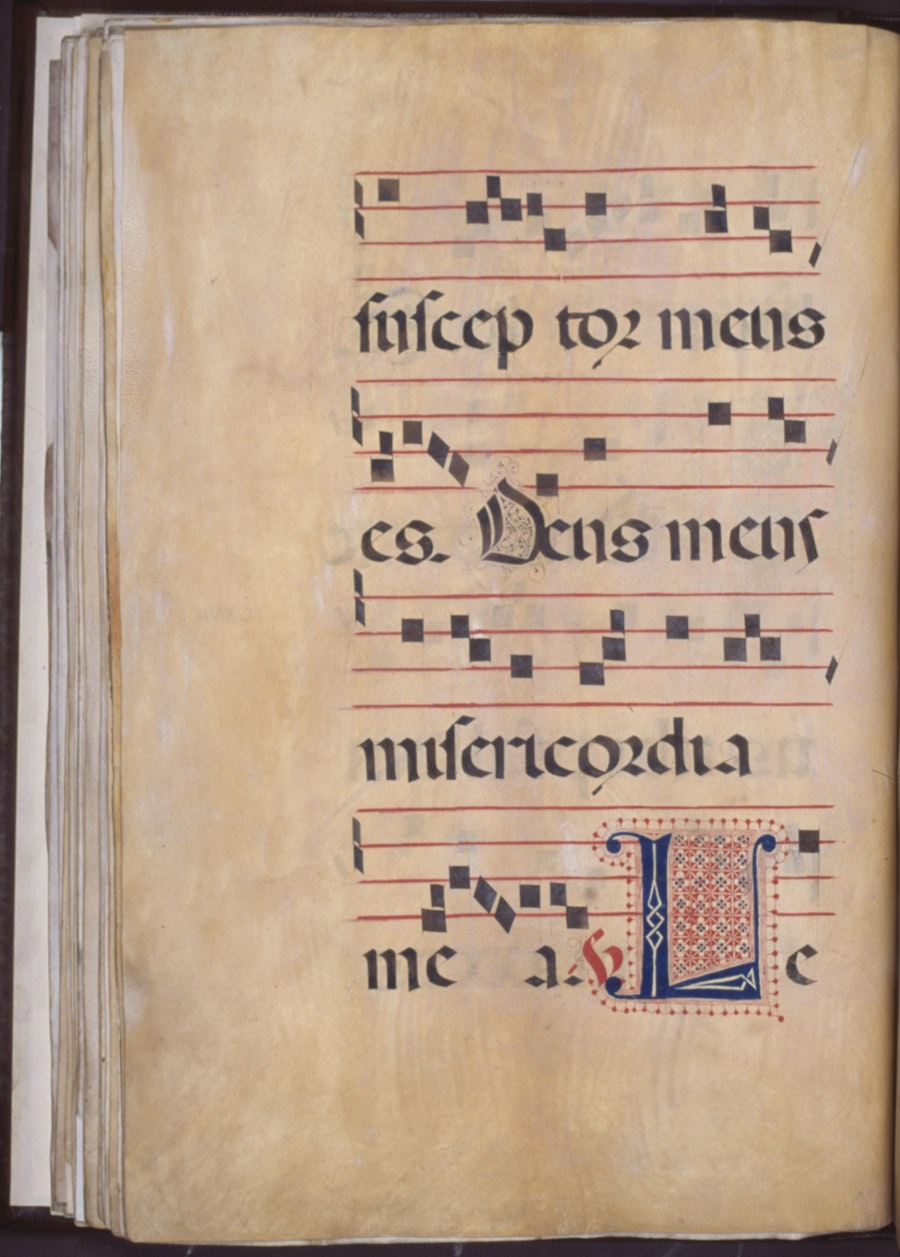 suscep tor meus
es. Deus meus
misericordia
me a. V. Le